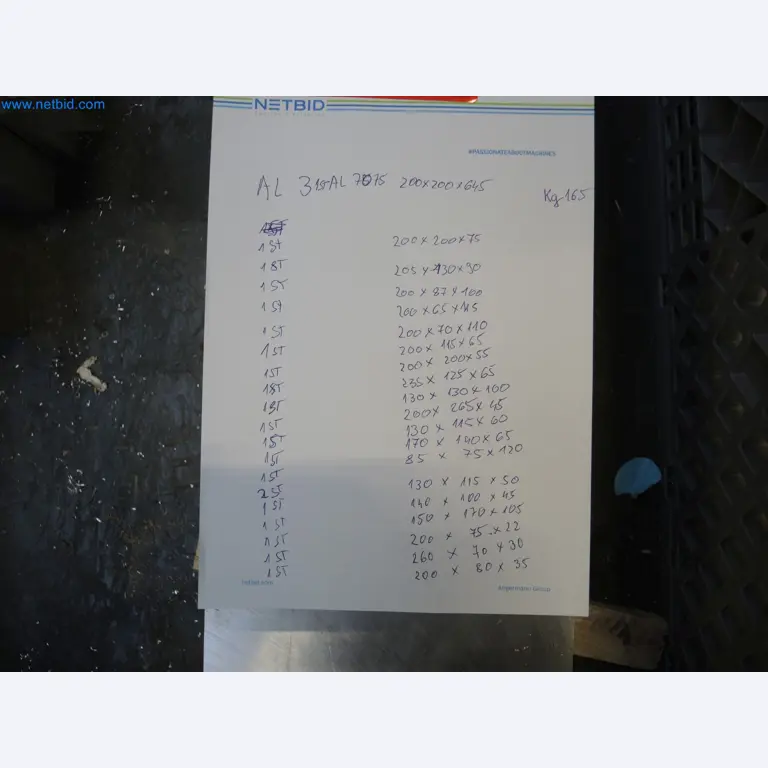 www.netbid.com
NETBID
AL 3 1ST AL 7075 200x200x645
Kg 165
1 ST 200 x 200 x 75
1 ST 205 x 130 x 90
1 ST 200 x 87 x 100
1 ST 200 x 65 x 115
1 ST 200 x 70 x 110
1 ST 200 x 115 x 65
200 x 200 x 55
1 ST 235 x 125 x 65
1 ST 130 x 130 x 100
1 ST 200 x 265 x 45
1 ST 130 x 115 x 60
1 ST 170 x 140 x 65
1 ST 85 x 75 x 120
1 ST 130 x 115 x 50
2 ST 140 x 100 x 45
1 ST 150 x 170 x 105
1 ST 200 x 75 x 22
1 ST 260 x 70 x 30
1 ST 200 x 80 x 35
1 ST
netbid.com
Angermann Group